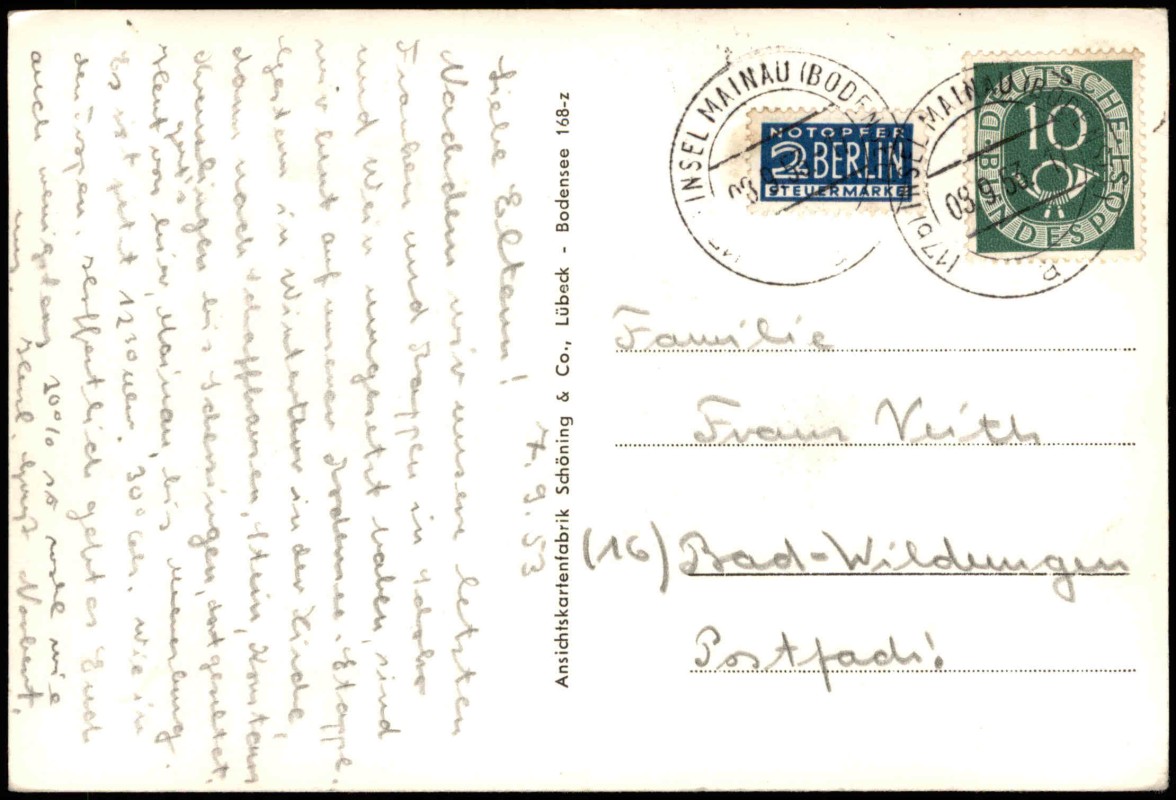 7. 9. 53
Liebe Eltern!
Nachdem wir unsern letzten
Franken und Rappen in
und Wein umgesetzt haben, sind
wir heut auf unserer Bodensee-Etappe.
Gestern in Winterthur in der Kirche,
dann nach Schaffhausen, Stein, Konstanz
Kreuzlingen bis
gut's
heut von hier, Mainau, bis Meersburg.
Es ist jetzt 12 30 Uhr. 30° Cels. wie in
den. Hoffentlich geht es Euch
auch wenigstens 20% so wohl wie
uns.
Herzl. Gruß Norbert.
Ansichtskartenfabrik Schöning & Co., Lübeck - Bodensee 168-z
INSEL MAINAU (BODEN
NOTOPFER
2 BERLIN
STEUERMARKE
(17b) INSEL MAINAU (BODENSEE)
09.9.53
a
DEUTSCHE
10
BUNDESPOST
Familie
Franz Veith
(16) Bad-Wildungen
Postfach!